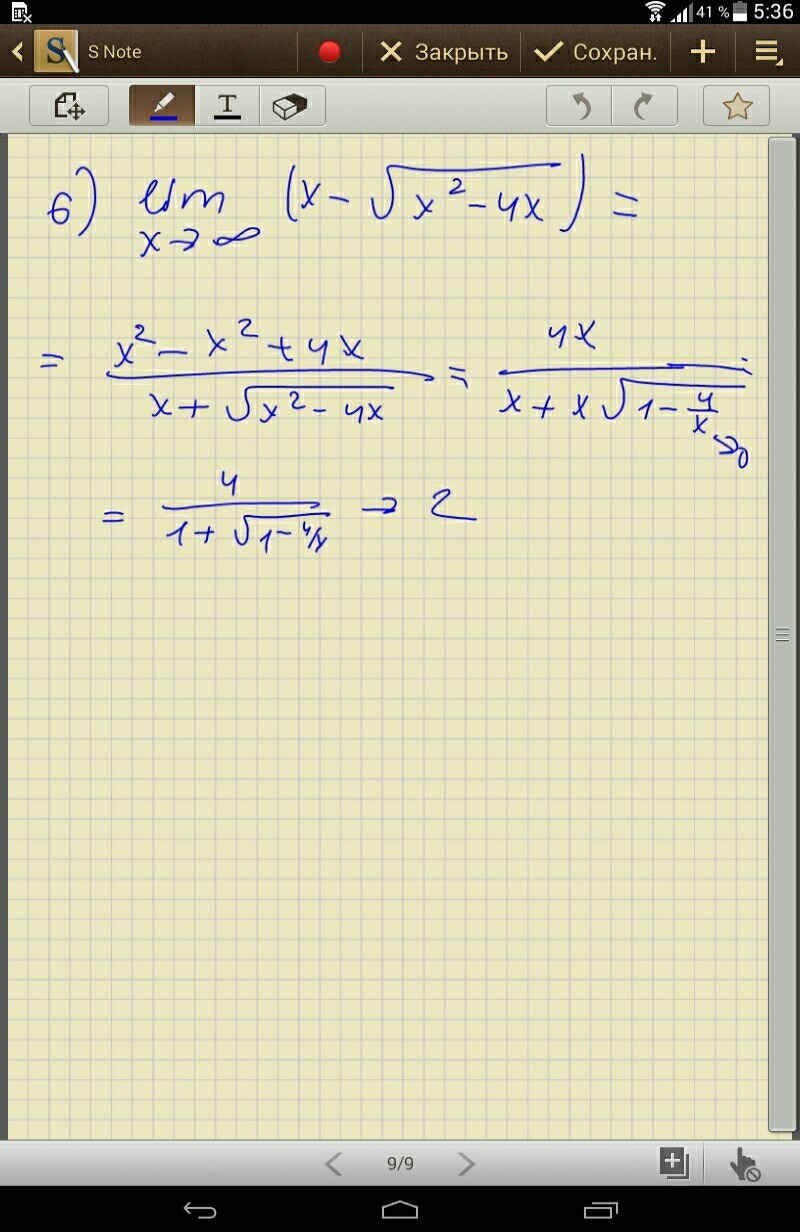 41 % 5:36
S Note Закрыть Сохран.
T
6) lim (x - √(x² - 4x)) =
x → ∞
= (x² - x² + 4x)/(x + √(x² - 4x)) = 4x/(x + x√(1 - 4/x)) =
→ 0
= 4/(1 + √(1 - 4/x)) → 2
9/9